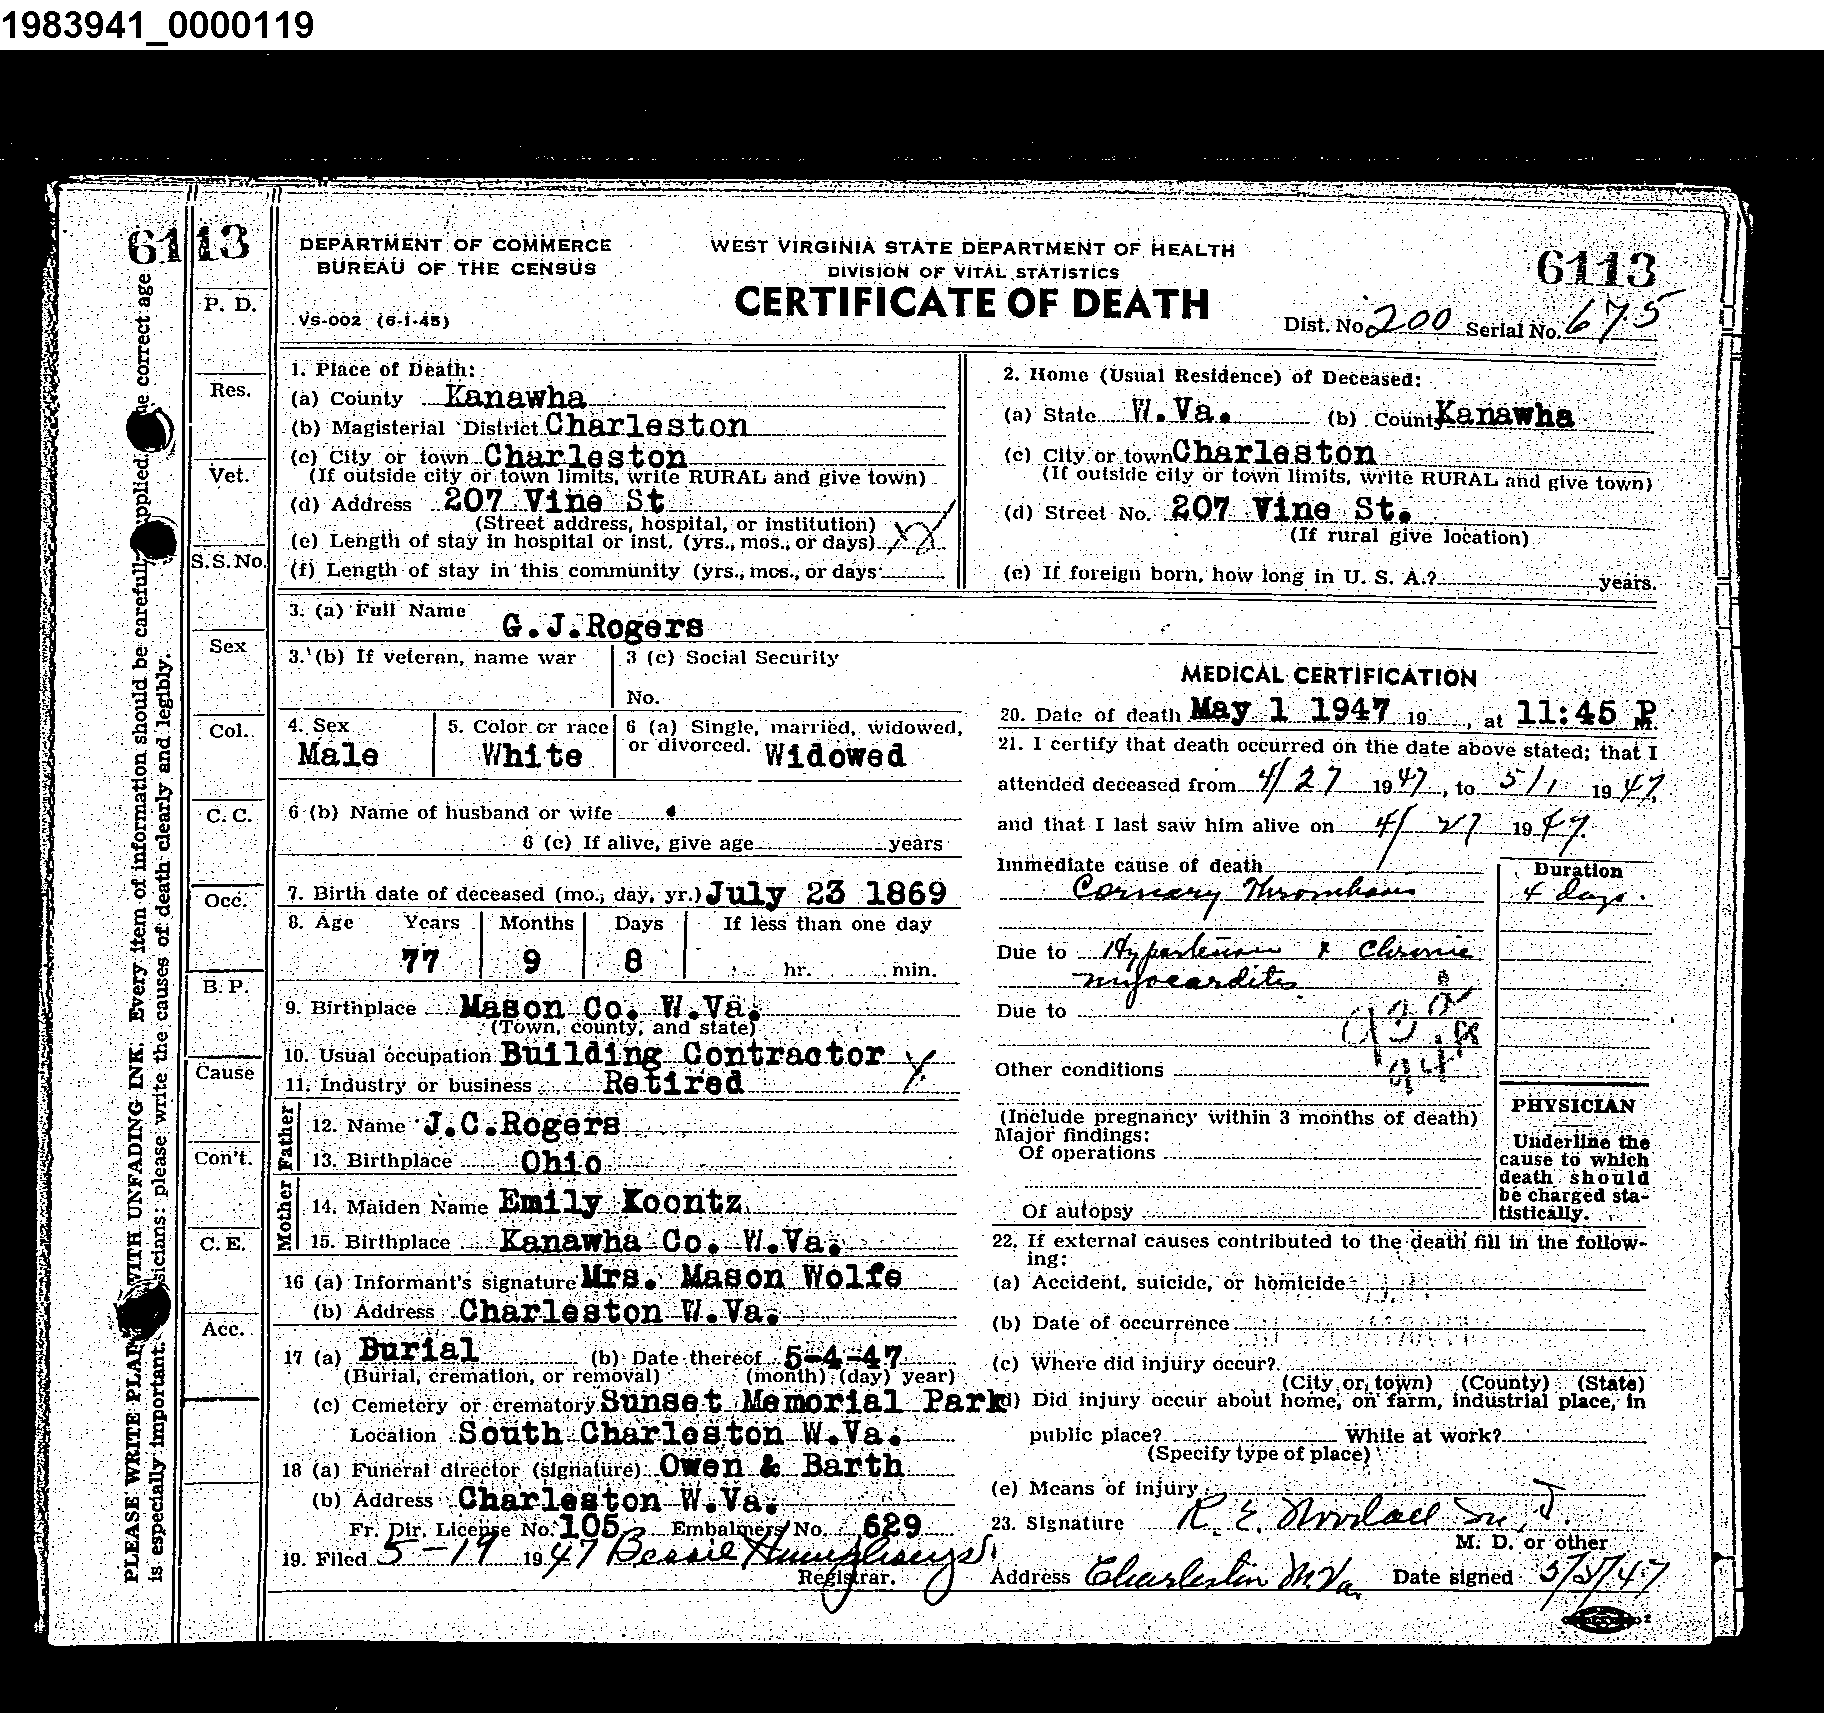 1983941_0000119
6113
DEPARTMENT OF COMMERCE
BUREAU OF THE CENSUS
VS-002 (6-1-45)
WEST VIRGINIA STATE DEPARTMENT OF HEALTH
DIVISION OF VITAL STATISTICS
CERTIFICATE OF DEATH
6113
Dist. No. 200 Serial No. 675
P. D.
Res.
Vet.
S.S.No.
Sex
Col.
C. C.
Occ.
B. P.
Cause
Con't.
C. E.
Acc.
PLEASE WRITE PLAINLY WITH UNFADING INK. Every item of information should be carefully supplied. correct age
is especially important. sicians: please write the causes of death clearly and legibly.
1. Place of Death:
(a) County Kanawha
(b) Magisterial District Charleston
(c) City or town Charleston
(If outside city or town limits, write RURAL and give town)
(d) Address 207 Vine St
(Street address, hospital, or institution)
(e) Length of stay in hospital or inst. (yrs., mos., or days) XX
(f) Length of stay in this community (yrs., mos., or days
2. Home (Usual Residence) of Deceased:
(a) State W.Va. (b) County Kanawha
(c) City or town Charleston
(If outside city or town limits, write RURAL and give town)
(d) Street No. 207 Vine St.
(If rural give location)
(e) If foreign born, how long in U. S. A.? years.
3. (a) Full Name G.J.Rogers
3. (b) If veteran, name war
3 (c) Social Security
No.
4. Sex
Male
5. Color or race
White
6 (a) Single, married, widowed,
or divorced. Widowed
6 (b) Name of husband or wife
6 (c) If alive, give age years
7. Birth date of deceased (mo., day, yr.) July 23 1869
8. Age Years Months Days If less than one day
77 9 8 hr. min.
9. Birthplace Mason Co. W.Va.
(Town, county, and state)
10. Usual occupation Building Contractor X
11. Industry or business Retired
Father
12. Name J.C.Rogers
13. Birthplace Ohio
Mother
14. Maiden Name Emily Koontz
15. Birthplace Kanawha Co. W.Va.
16 (a) Informant's signature Mrs. Mason Wolfe
(b) Address Charleston W.Va.
17 (a) Burial (b) Date thereof 5-4-47
(Burial, cremation, or removal) (month) (day) year)
(c) Cemetery or crematory Sunset Memorial Park
Location South Charleston W.Va.
18 (a) Funeral director (signature) Owen & Barth
(b) Address Charleston W.Va.
Fr. Dir. License No. 105 Embalmers No. 629
19. Filed 5-19 1947 Bessie Humphreys
Registrar.
MEDICAL CERTIFICATION
20. Date of death May 1 1947 19 , at 11:45 P M.
21. I certify that death occurred on the date above stated; that I
attended deceased from 4/27 1947, to 5/1, 1947,
and that I last saw him alive on 4/27 1947.
Immediate cause of death
Duration
Cornary Thrombosis 4 days.
Due to Hypertension & Chronic
myocarditis
Due to
93
94
Other conditions
(Include pregnancy within 3 months of death)
Major findings:
Of operations
Of autopsy
PHYSICIAN
Underline the
cause to which
death should
be charged sta-
tistically.
22. If external causes contributed to the death fill in the follow-
ing:
(a) Accident, suicide, or homicide
(b) Date of occurrence
(c) Where did injury occur?
(City or town) (County) (State)
(d) Did injury occur about home, on farm, industrial place, in
public place? While at work?
(Specify type of place)
(e) Means of injury
23. Signature R. E. Woodall
M. D. or other
Address Charleston W Va. Date signed 5/5/47